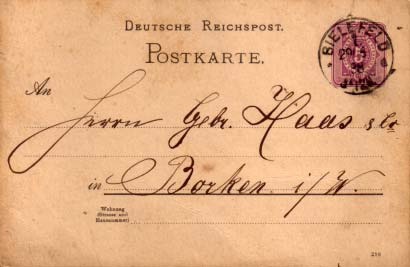 DEUTSCHE REICHSPOST.
POSTKARTE.
BIELEFELD
An
Herrn Gebr. Haas & Co
in Borken i/W.
Wohnung
(Strasse und
Hausnummer)